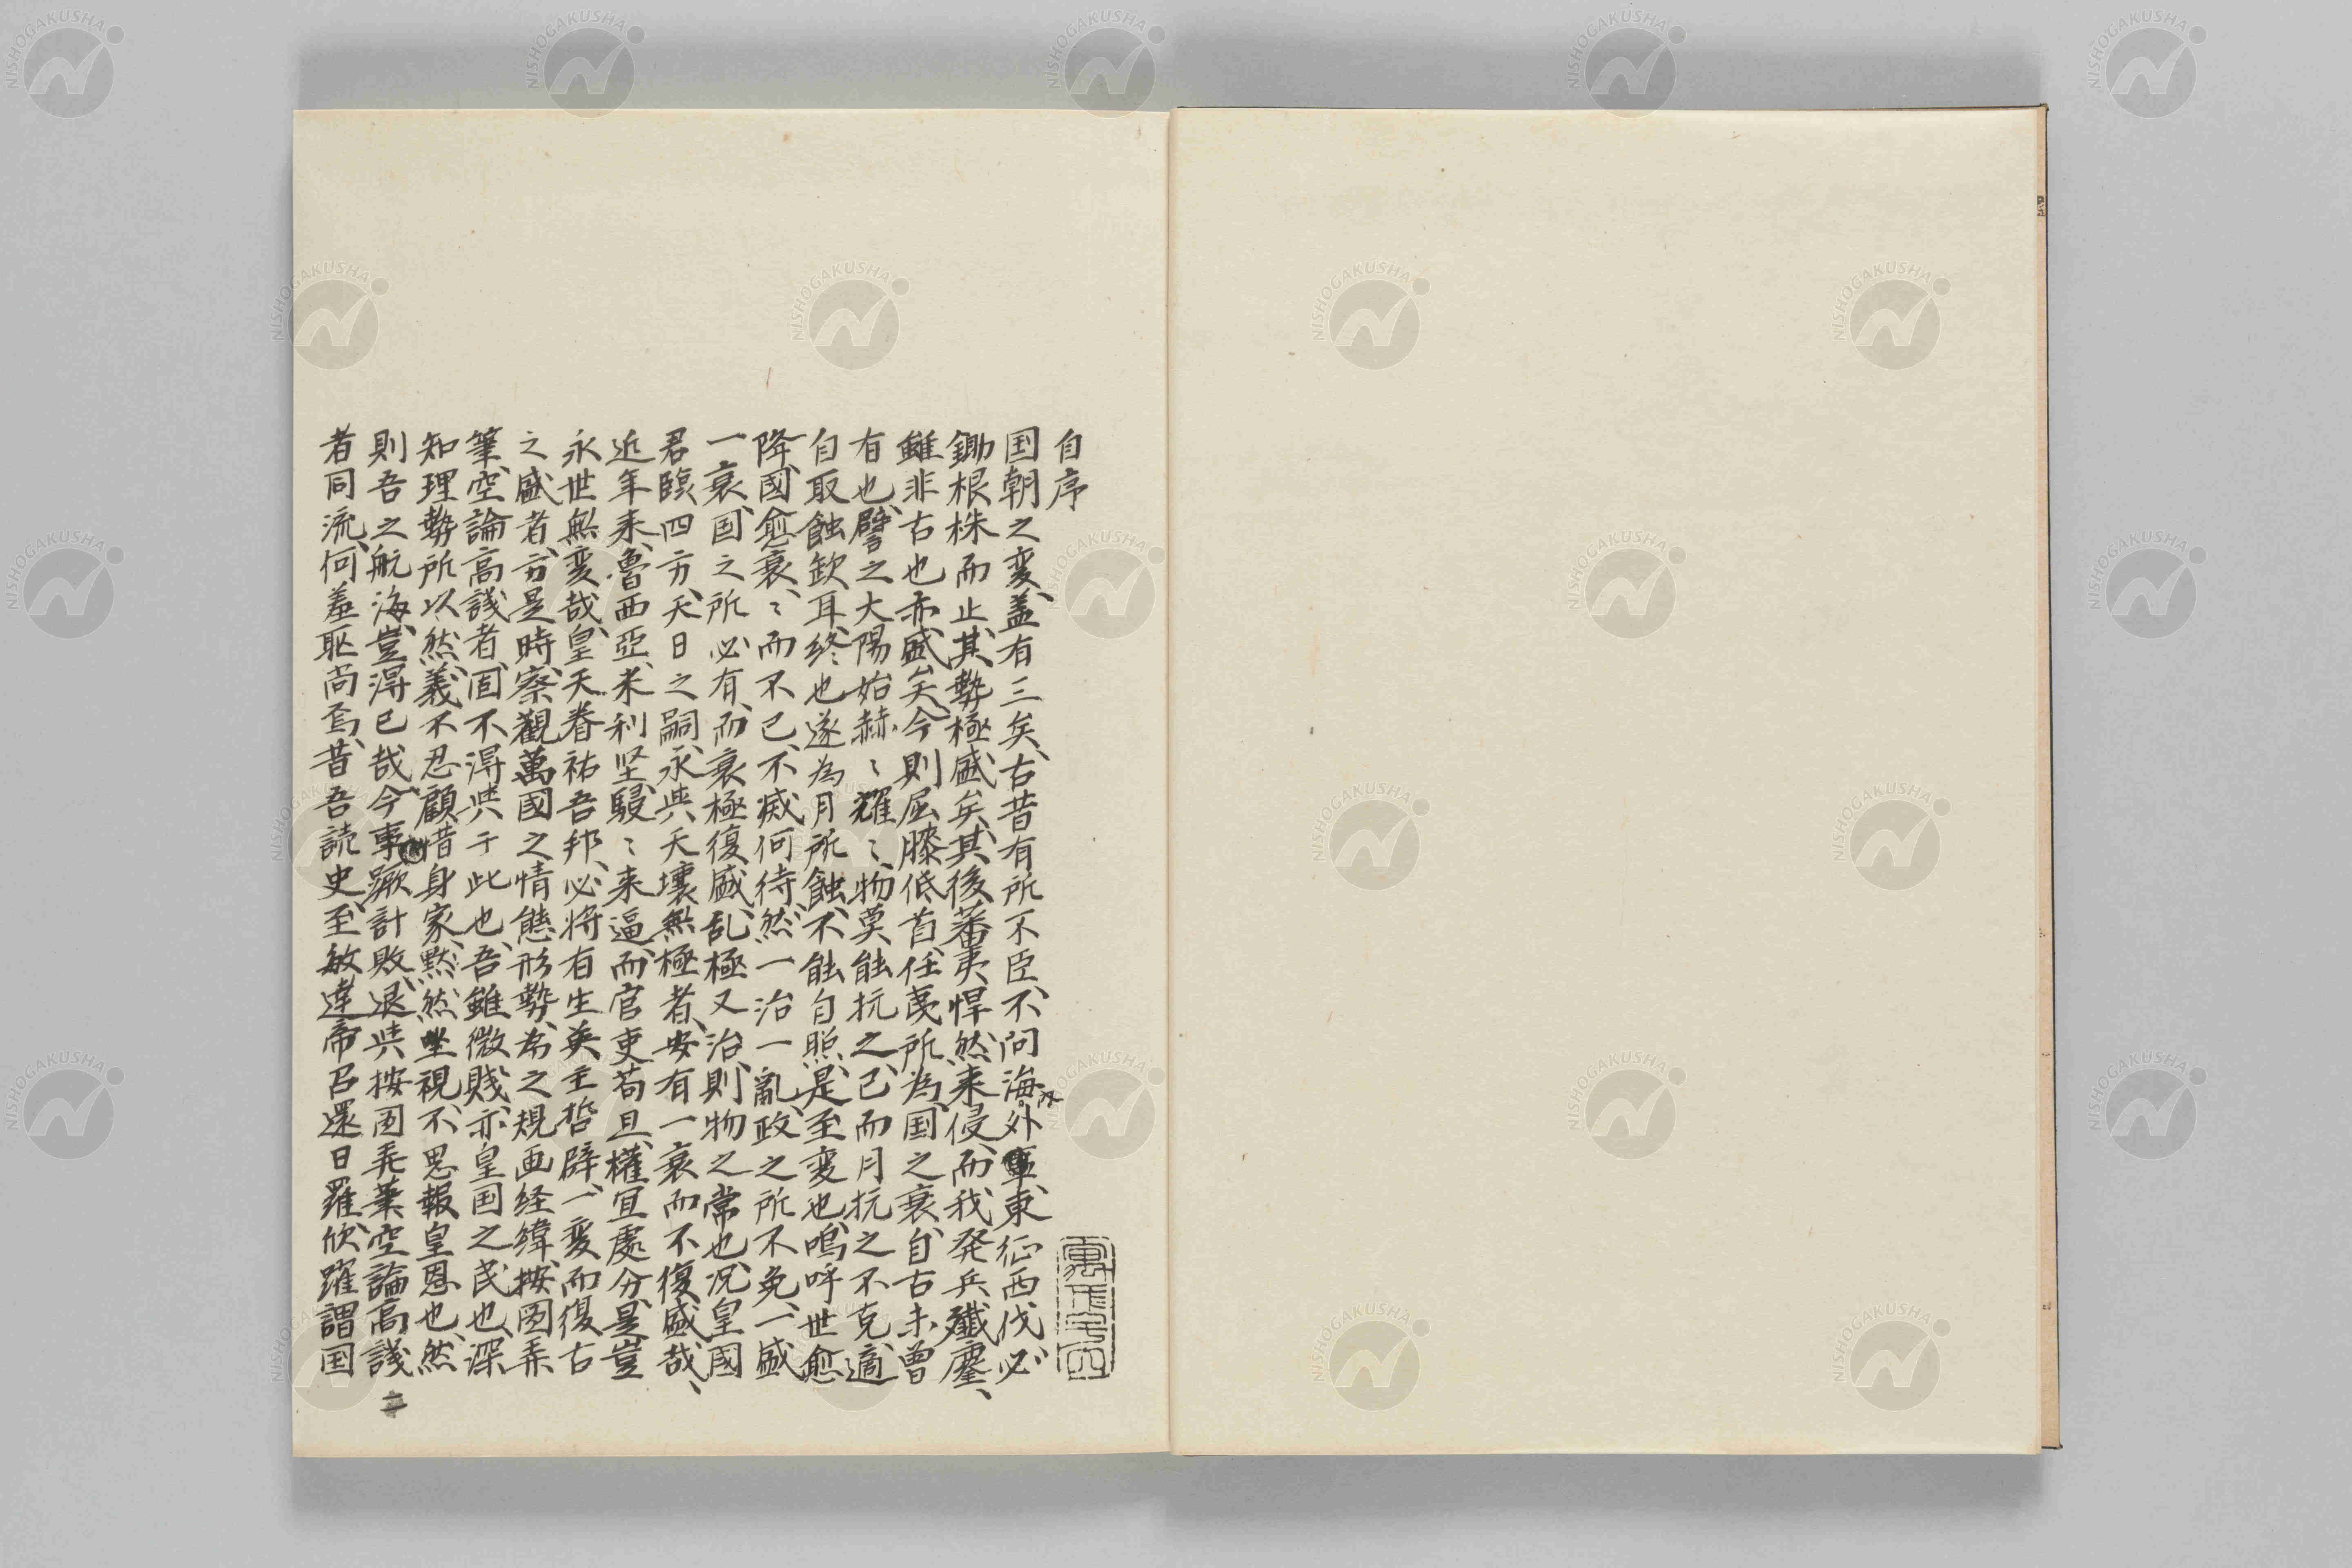 自序
国朝之変、蓋有三矣、古昔有所不臣、不問海内外、東征西伐、必
鋤根株而止、其勢極盛矣、其後蕃夷悍然来侵、而我発兵殲鏖、
雖非古也、亦盛矣、今則屈膝低首、任虜所為、国之衰、自古未曽
有也、譬之大陽始赫〻耀〻、物莫能抗之、已而月抗之不克、適
自取蝕欽耳、終也遂為月所蝕、不能自照、是至変也、嗚呼世愈
降、國愈衰、〻而不已、不滅何待、然一治一亂、政之所不免、一盛
一衰、国之所必有、而衰極復盛、乱極又治、則物之常也、况皇國
君臨四方、天日之嗣、永与天壤無極者、安有一衰而不復盛哉、
近年来、魯西亞、米利堅、駸〻来逼、而官吏苟且、權宜處分、是豈
永世無変哉、皇天眷祐吾邦、必将有生英主哲辟、一変而復古
之盛者、方是時、察觀萬國之情態形勢、為之規画経緯、按図弄
筆、空論高議者、固不得与于此也、吾雖微賎、亦皇国之民也、深
知理勢所以然、義不忍顧惜身家、黙然坐視、不思報皇恩也、然
則吾之航海、豈得已哉、今事蹶計敗、退与按図弄筆空論高議
者同流、何羞耻尚焉、昔吾読史、至敏達帝召還日羅、欣躍謂国